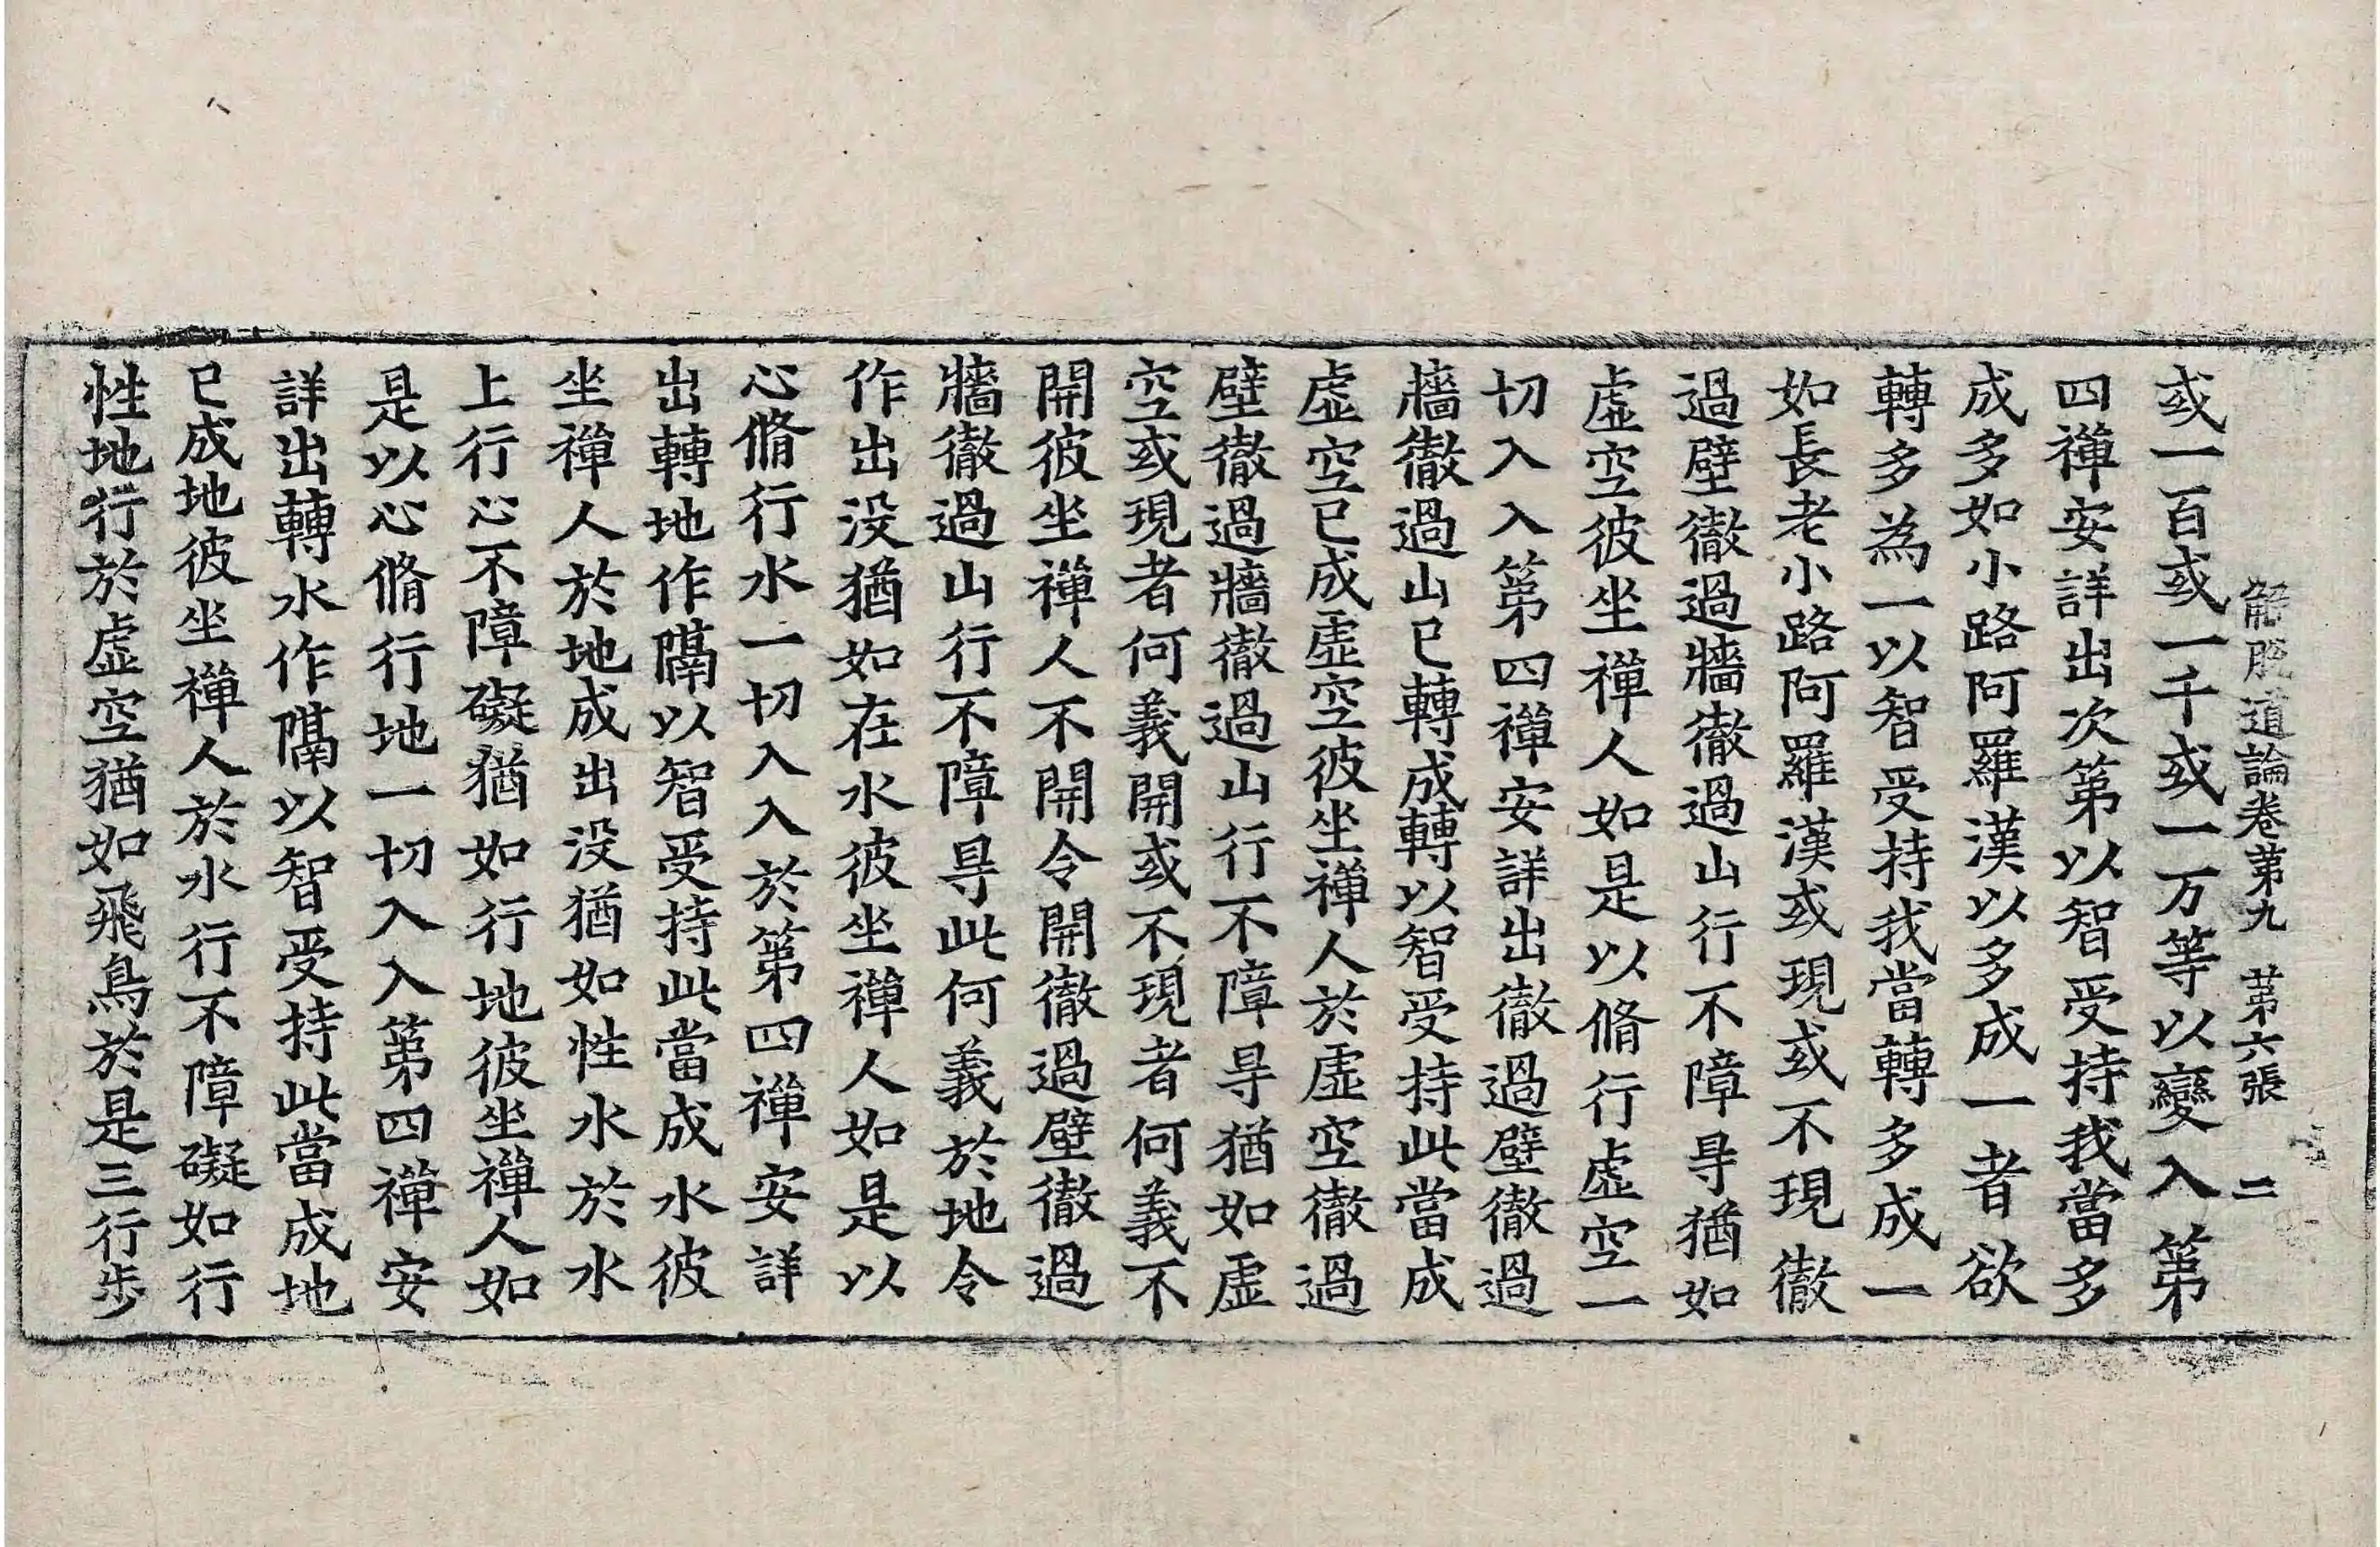 解脱道論卷第九 苐六張 二
或一百或一千或一万等以變入第
四禪安詳出次第以智受持我當多
成多如小路阿羅漢以多成一者欲
轉多為一以智受持我當轉多成一
如長老小路阿羅漢或現或不現徹
過壁徹過牆徹過山行不障㝵猶如
虛空彼坐禪人如是以脩行虛空一
切入入第四禪安詳出徹過壁徹過
牆徹過山已轉成轉以智受持此當成
虛空已成虛空彼坐禪人於虛空徹過
壁徹過牆徹過山行不障㝵猶如虛
空或現者何義開或不現者何義不
開彼坐禪人不開令開徹過壁徹過
牆徹過山行不障㝵此何義於地令
作出沒猶如在水彼坐禪人如是以
心脩行水一切入入於第四禪安詳
出轉地作隔以智受持此當成水彼
坐禪人於地成出沒猶如性水於水
上行心不障礙猶如行地彼坐禪人如
是以心脩行地一切入入第四禪安
詳出轉水作隔以智受持此當成地
已成地彼坐禪人於水行不障礙如行
性地行於虛空猶如飛鳥於是三行步